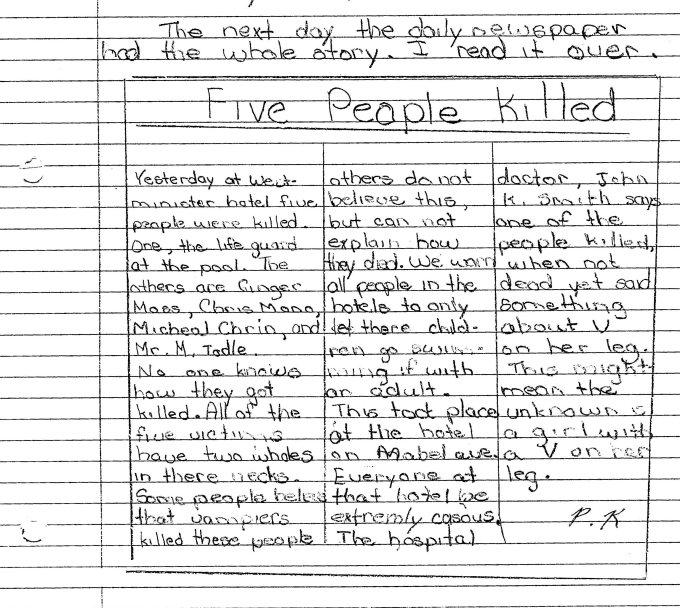 The next day the daily newspaper
had the whole story. I read it over.
Five People Killed
Yesterday at West-
minister hotel five
people were killed.
One, the life guard
at the pool. The
others are Ginger
Moss, Chris Mono,
Micheal Chrin, and
Mr. M. Todle.
No one knows
how they got
killed. All of the
five victims
have two wholes
in there necks.
Some people
that vampiers
killed these people
others do not
believe this,
but can not
explain how
they died. We warn
all people in the
hotels to only
let there child-
ren go swim-
ming if with
an adult.
This toct place
at the hotel
on Mabel ave.
Everyone at
that hotel be
extremly casous.
The hospital
doctor, John
K. Smith says
one of the
people killed,
when not
dead yet said
something
about V
on her leg.
This might
mean the
unknown is
a girl with
a V on her
leg.
P.K